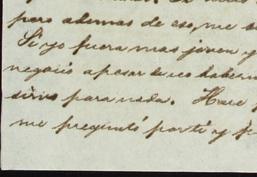 pero ademas de eso, me
Si yo fuera mas joven y
negocio a pesar de no haber
sirve para nada. Hace
me preguntó por ti y